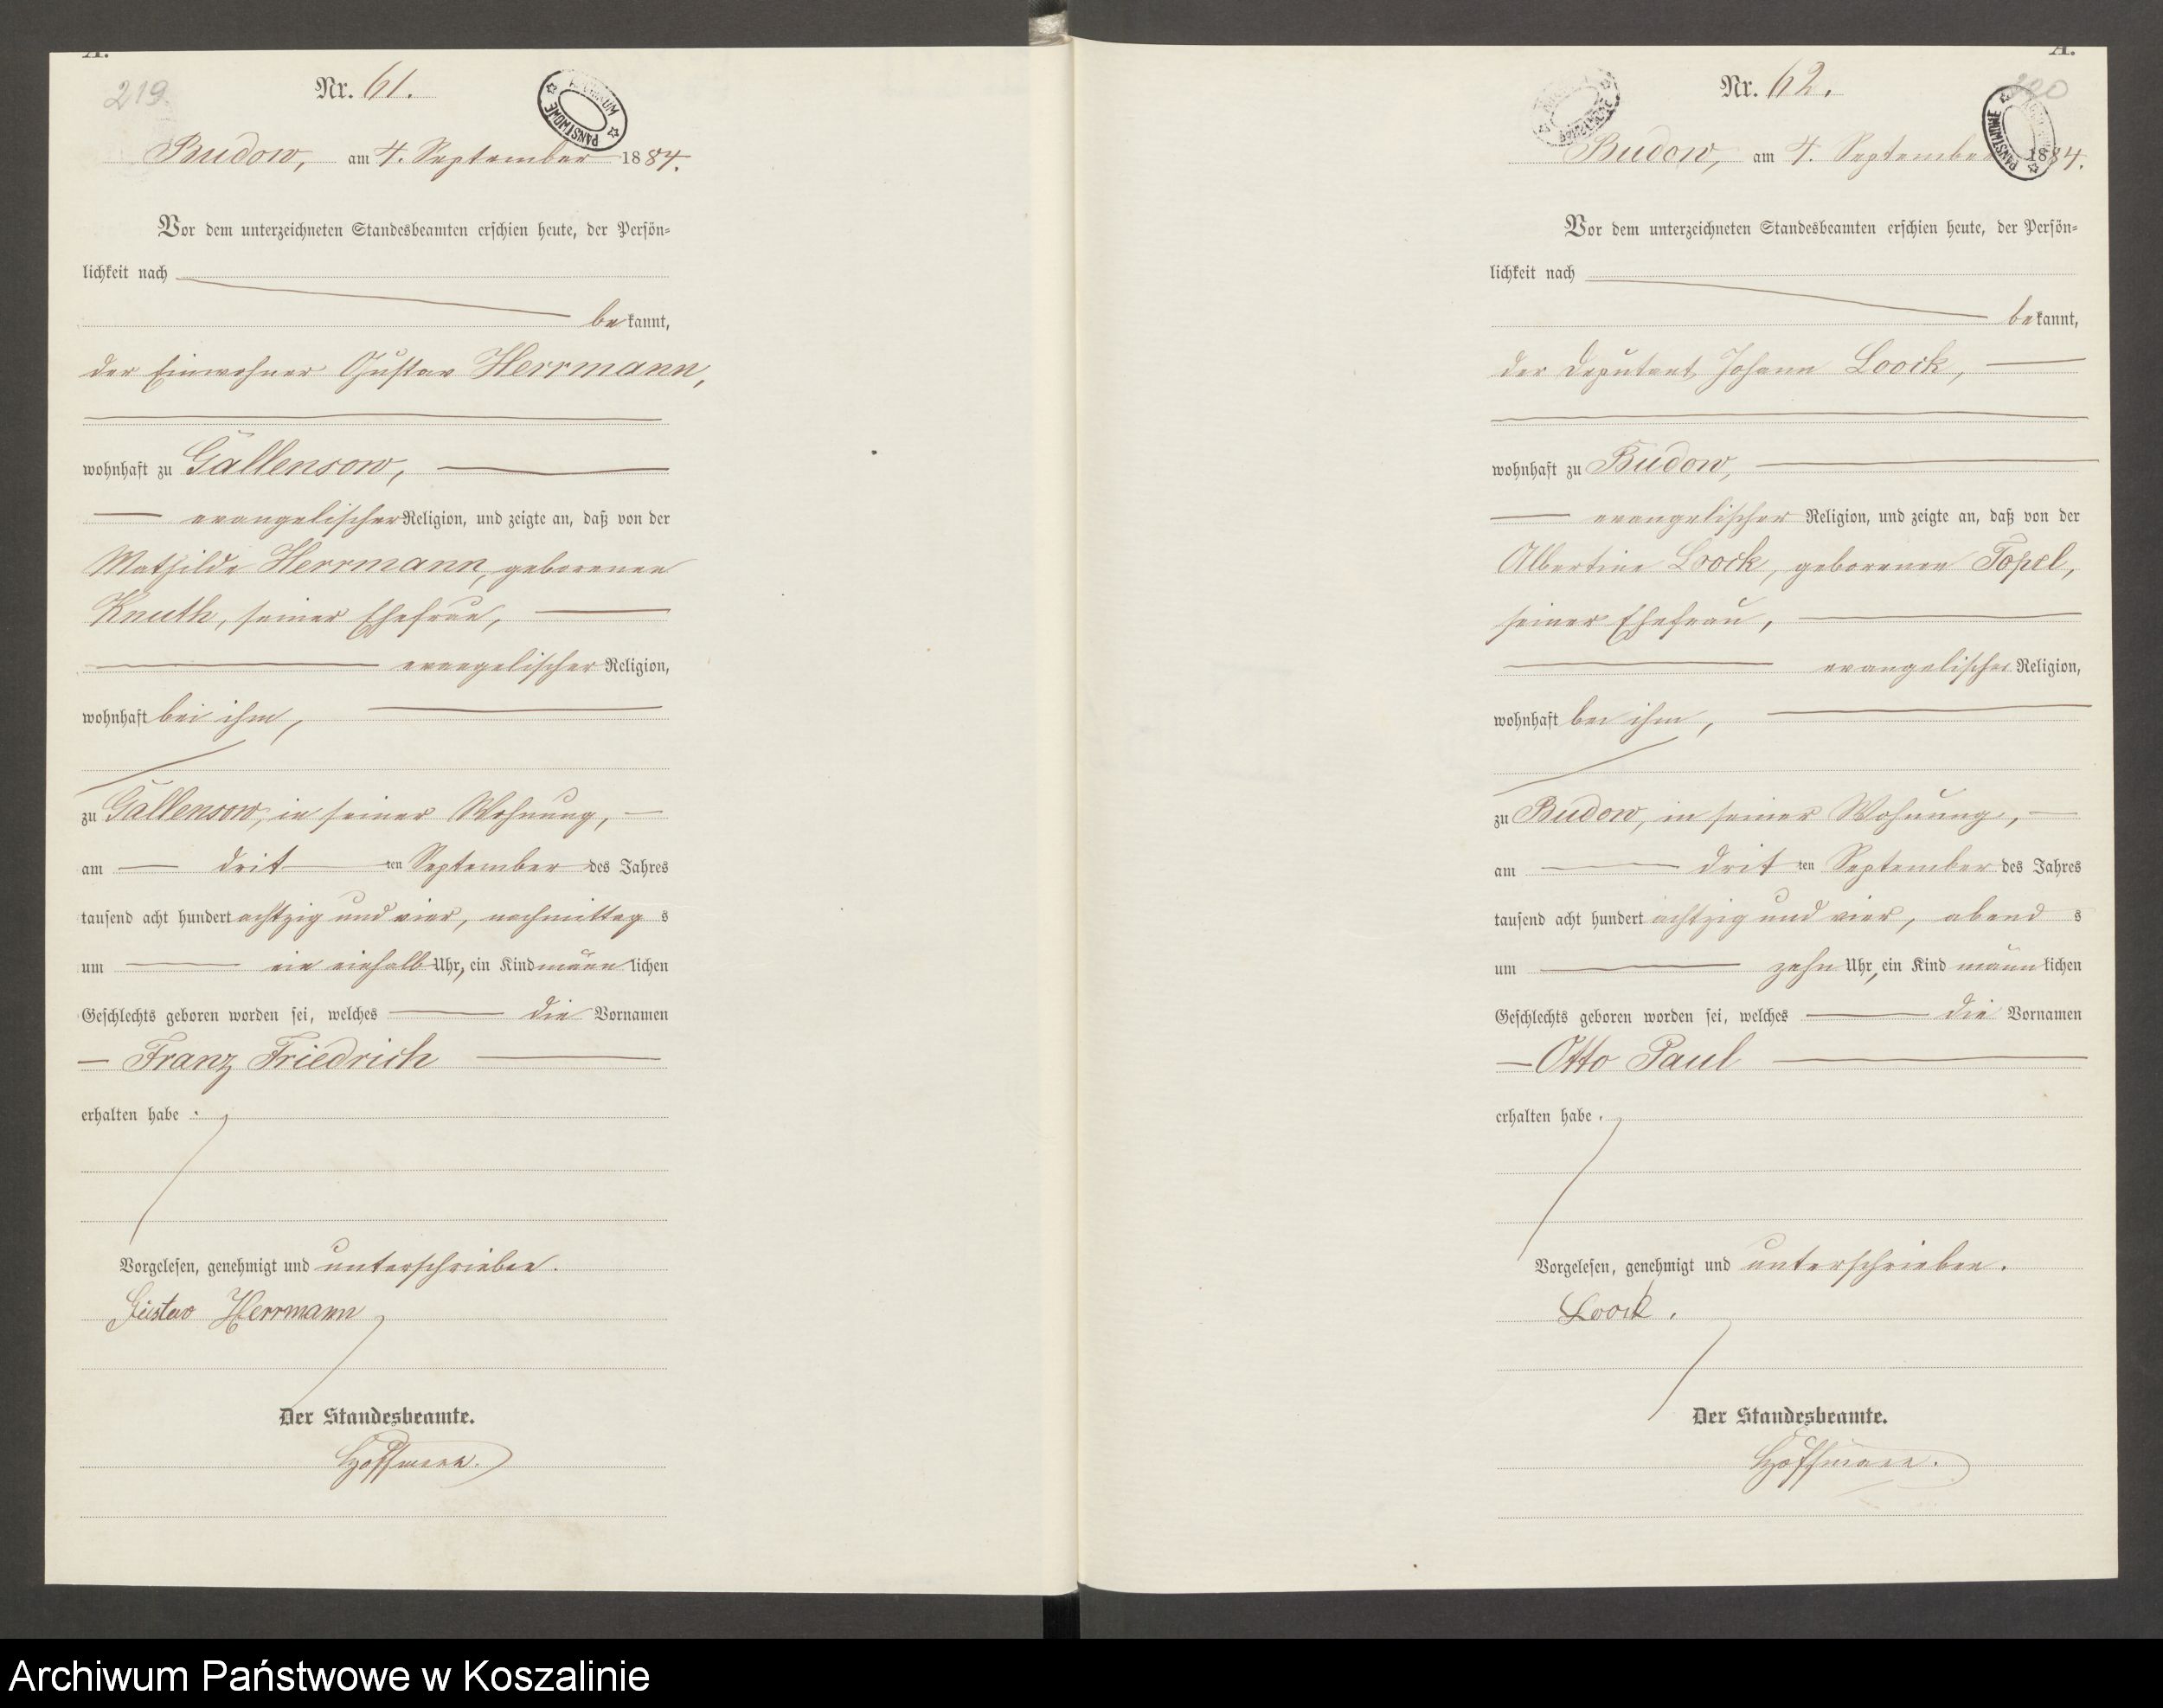 A.
219
Nr. 61.
ARCHIWUM PAŃSTWOWE
Budow, am 4. September 1884.
Vor dem unterzeichneten Standesbeamten erschien heute, der Persön-
lichkeit nach
bekannt,
der Einwohner Gustav Herrmann,
wohnhaft zu Gallensow,
evangelischer Religion, und zeigte an, daß von der
Mathilde Herrmann, geborenen
Knuth, seiner Ehefrau,
evangelischer Religion,
wohnhaft bei ihm,
zu Gallensow, in seiner Wohnung,
am dritten September des Jahres
tausend acht hundert achtzig und vier, nachmittags
um ein einhalb Uhr, ein Kind männlichen
Geschlechts geboren worden sei, welches die Vornamen
Franz Friedrich
erhalten habe.
Vorgelesen, genehmigt und unterschrieben.
Gustav Herrmann
Der Standesbeamte.
Hoffmann.
A.
Nr. 62.
PAŃSTWOWE
Budow, am 4. September 1884.
Vor dem unterzeichneten Standesbeamten erschien heute, der Persön-
lichkeit nach
bekannt,
der Deputant Johann Loock,
wohnhaft zu Budow,
evangelischer Religion, und zeigte an, daß von der
Albertine Loock, geborenen Topel,
seiner Ehefrau,
evangelischer Religion,
wohnhaft bei ihm,
zu Budow, in seiner Wohnung,
am dritten September des Jahres
tausend acht hundert achtzig und vier, abends
um zehn Uhr, ein Kind männlichen
Geschlechts geboren worden sei, welches die Vornamen
Otto Paul
erhalten habe.
Vorgelesen, genehmigt und unterschrieben.
Loock.
Der Standesbeamte.
Hoffmann.
Archiwum Państwowe w Koszalinie